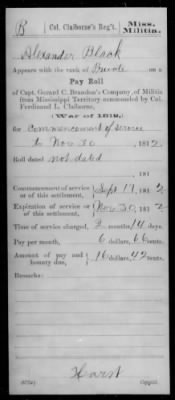 B | Col. Claiborne's Reg't. | Miss. Militia.
Alexander Black
Appears with the rank of Private on a
Pay Roll
of Capt. Gerard C. Brandon's Company, of Militia
from Mississippi Territory commanded by Col.
Ferdinand L. Claiborne,
(War of 1812,)
for commencement of service
to Nov 30, 1812
Roll dated not dated
, 181
Commencement of service or of this settlement, Sept 17, 1812
Expiration of service or of this settlement, Nov 30, 1812
Time of service charged, 2 months 14 days.
Pay per month, 6 dollars, 66 cents.
Amount of pay and bounty due, 16 dollars, 42 cents.
Remarks:
Harst
Copyist.